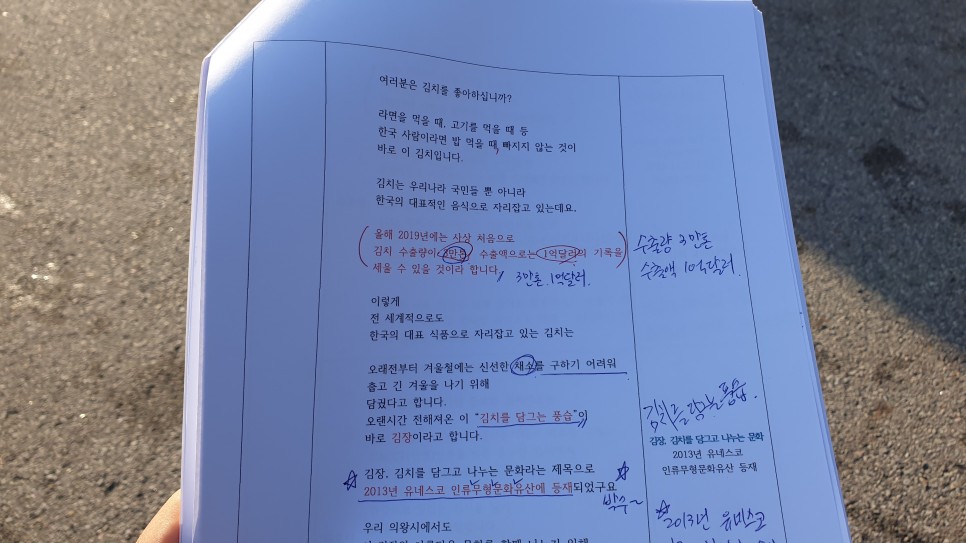 여러분은 김치를 좋아하십니까?
라면을 먹을 때, 고기를 먹을 때 등
한국 사람이라면 밥 먹을 때, 빠지지 않는 것이
바로 이 김치입니다.
김치는 우리나라 국민들 뿐 아니라
한국의 대표적인 음식으로 자리잡고 있는데요.
올해 2019년에는 사상 처음으로
김치 수출량이 3만톤, 수출액으로는 1억달러의 기록을
세울 수 있을 것이라 합니다.
3만톤. 1억달러.
수출량 3만톤
수출액 1억달러.
이렇게
전 세계적으로도
한국의 대표 식품으로 자리잡고 있는 김치는
오래전부터 겨울철에는 신선한 채소를 구하기 어려워
춥고 긴 겨울을 나기 위해
담궜다고 합니다.
오랜시간 전해져온 이 "김치를 담그는 풍습"이
바로 김장이라고 합니다.
김치를 담그는 풍습.
김장, 김치를 담그고 나누는 문화
2013년 유네스코
인류무형문화유산 등재
김장, 김치를 담그고 나누는 문화라는 제목으로
2013년 유네스코 인류무형문화유산에 등재되었구요
박수~
2013년 유네스코
우리 의왕시에서도